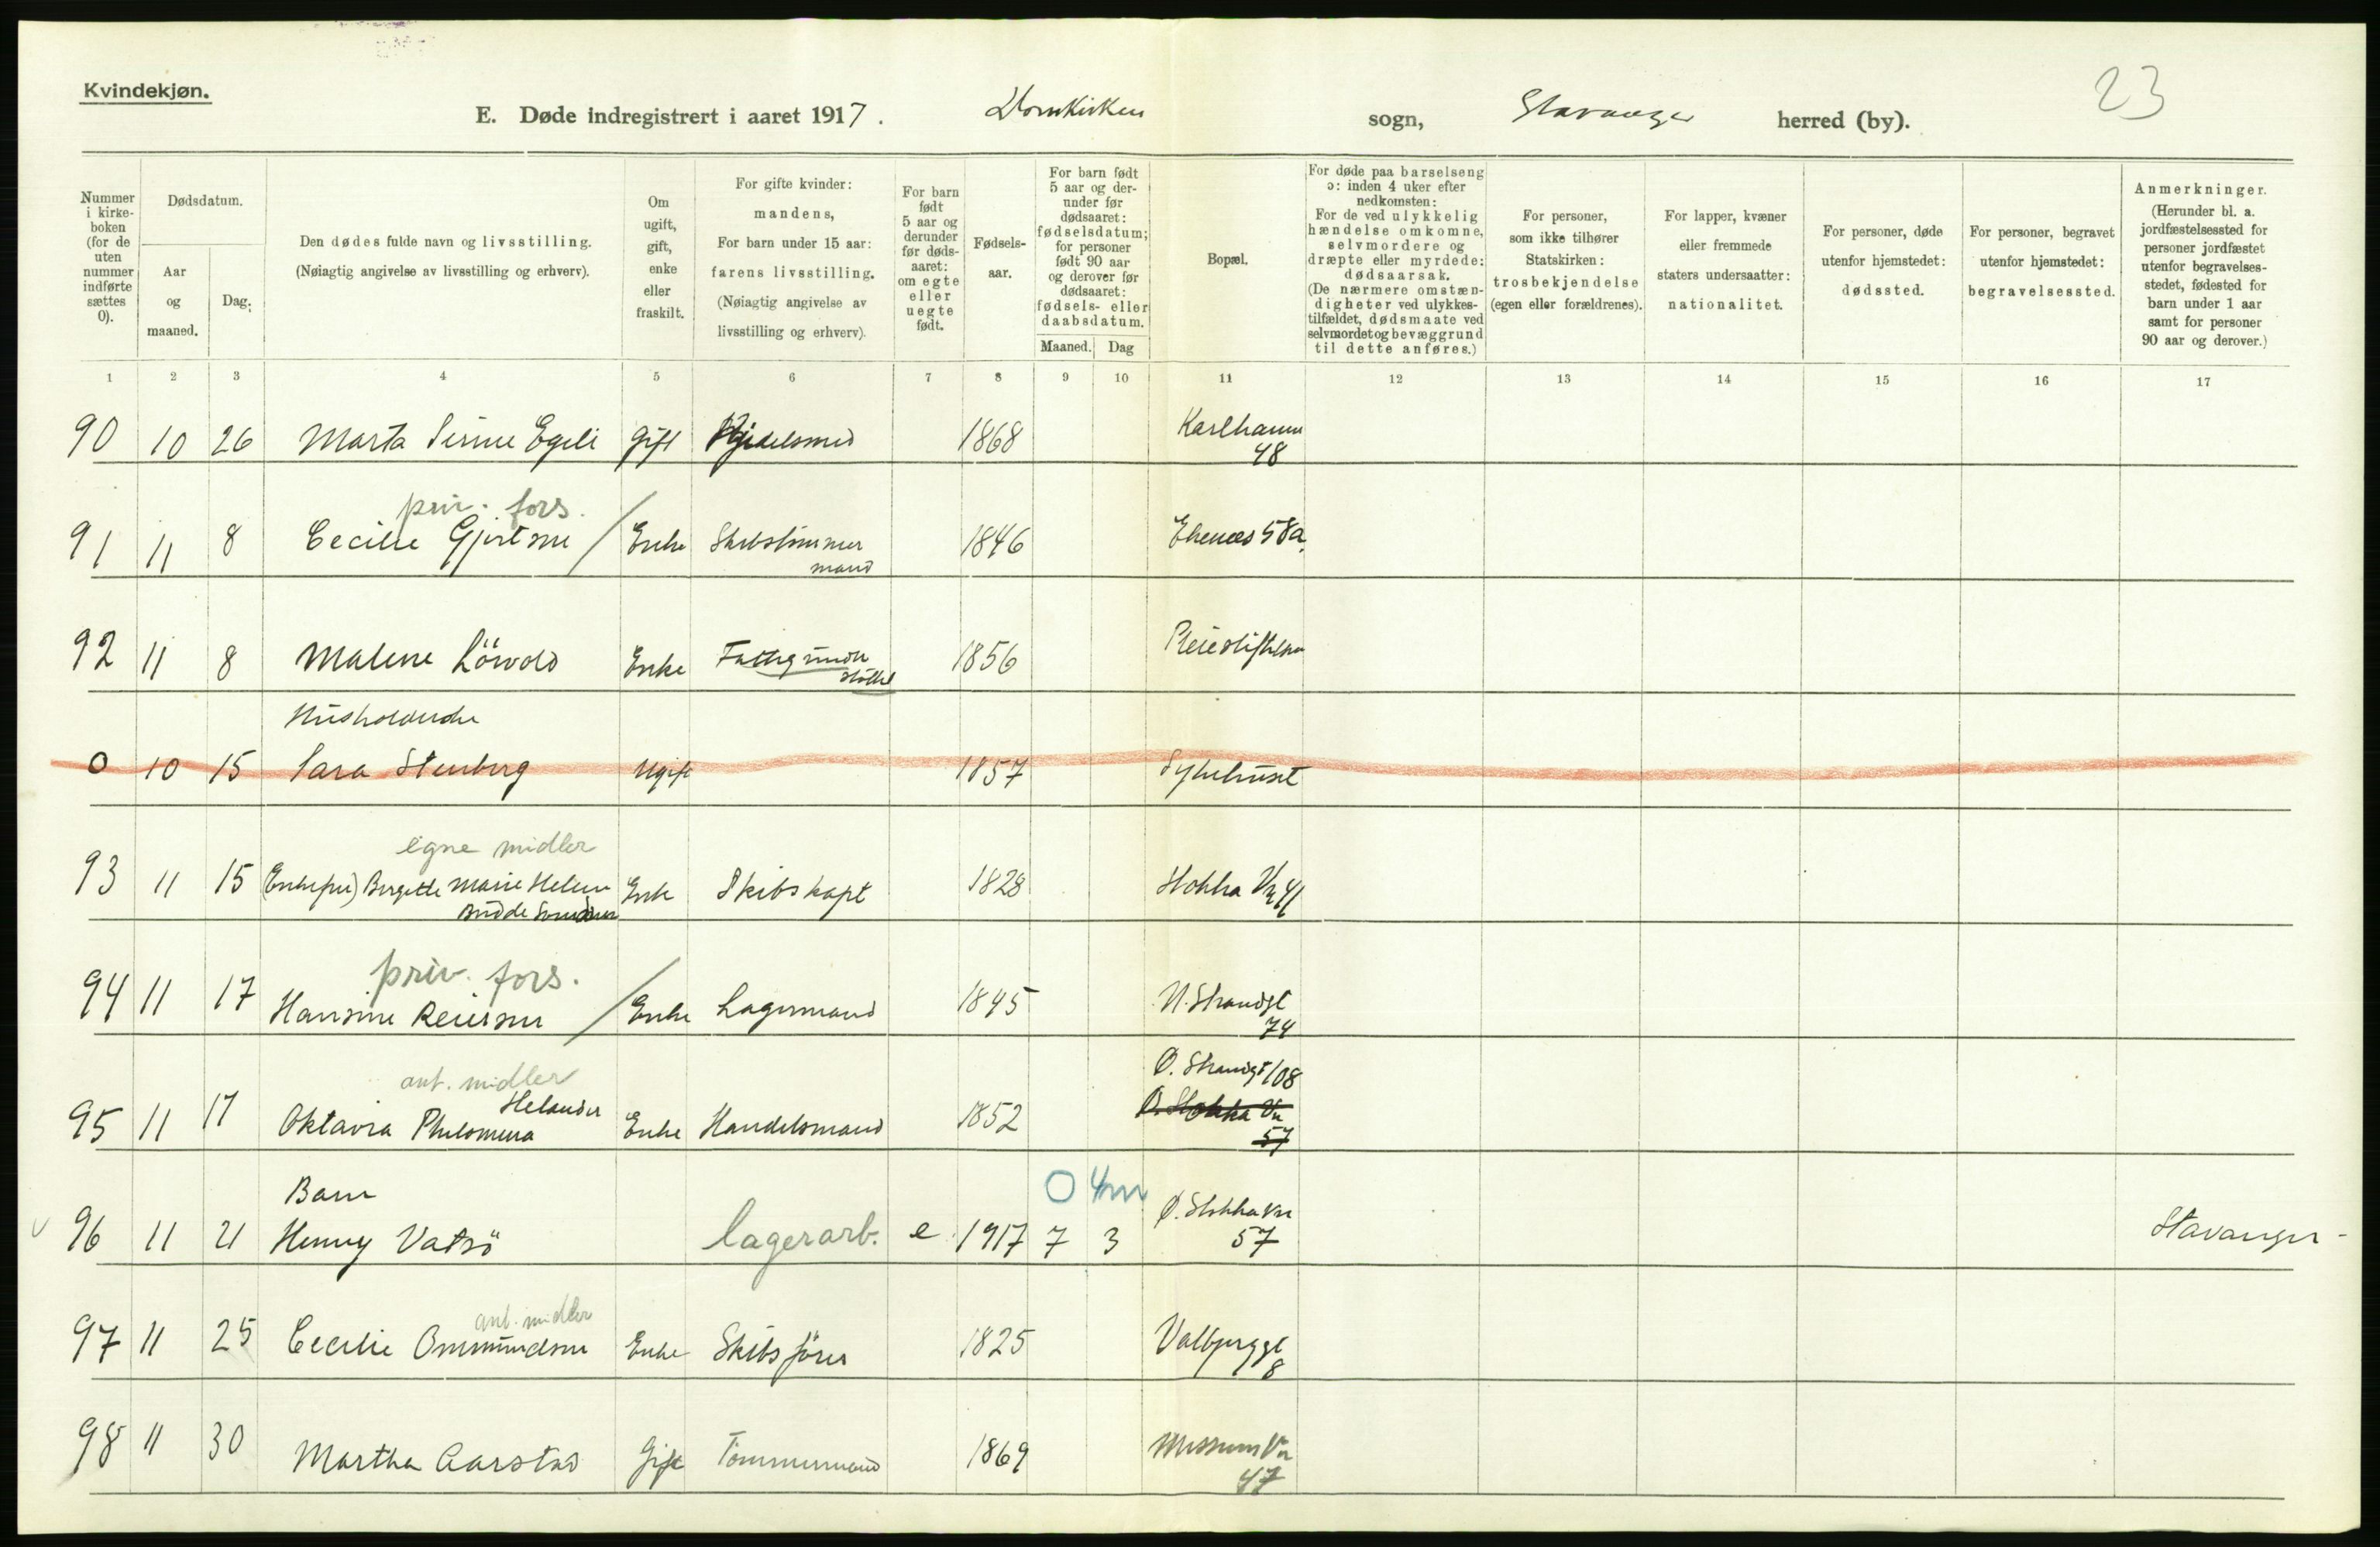 Kvindekjøn.
23
E. Døde indregistrert i aaret 1917. Domkirken sogn, Stavanger herred (by).
Nummer i kirkeboken (for de uten nummer indførte sættes 0).
Dødsdatum.
Aar og maaned.
Dag.
Den dødes fulde navn og livsstilling.
(Nøiagtig angivelse av livsstilling og erhverv).
Om ugift, gift, enke eller fraskilt.
For gifte kvinder: mandens,
For barn under 15 aar: farens livsstilling.
(Nøiagtig angivelse av livsstilling og erhverv).
For barn født 5 aar og derunder før dødsaaret: om egte eller uegte født.
Fødselsaar.
For barn født 5 aar og derunder før dødsaaret: fødselsdatum; for personer født 90 aar og derover før dødsaaret: fødsels- eller daabsdatum.
Maaned. Dag
Bopæl.
For døde paa barselseng ɔ: inden 4 uker efter nedkomsten:
For de ved ulykkelig hændelse omkomne, selvmordere og dræpte eller myrdede: dødsaarsak.
(De nærmere omstændigheter ved ulykkestilfældet, dødsmaate ved selvmordet og bevæggrund til dette anføres.)
For personer, som ikke tilhører Statskirken: trosbekjendelse (egen eller forældrenes).
For lapper, kvæner eller fremmede staters undersaatter: nationalitet.
For personer, døde utenfor hjemstedet: dødssted.
For personer, begravet utenfor hjemstedet: begravelsessted.
Anmerkninger.
(Herunder bl. a. jordfæstelsessted for personer jordfæstet utenfor begravelsesstedet, fødested for barn under 1 aar samt for personer 90 aar og derover.)
1 2 3 4 5 6 7 8 9 10 11 12 13 14 15 16 17
90 10 26 Marta Serine Egeli gift 1868 Karlhamn 48
priv. fors.
91 11 8 Cecilie Gjertsen / Enke Skibstømmermand 1846 58a
92 11 8 Malene Lövold Enke Fattigunderstöttet 1856 Pleiestiftelsen
Husholderske
0 10 15 Sara Stenberg Ugift 1857 Sykehuset
egne midler
93 11 15 (Enkefru) Bergitte Marie Helene Budde Enke Skibskapt 1828 Stokka Vn 41
priv. fors.
94 11 17 Hansine Reiersen / Enke Lagermand 1845 N. Strandgt 74
ant. midler
95 11 17 Oktavia Philomena Helander Enke Handelsmand 1852 Ø. Strandgt 108
Ø. Stokka Vn 57
Barn
0 4m
96 11 21 Henny Vatsö lagerarb. e 1917 7 3 Ø. Stokka Vn 57 Stavanger
ant. midler
97 11 25 Cecilie Ommundsen Enke Skibsfører 1825 Valbjerggt 8
98 11 30 Martha Aarstad Gift Tömmermand 1869 Missions Vn 47